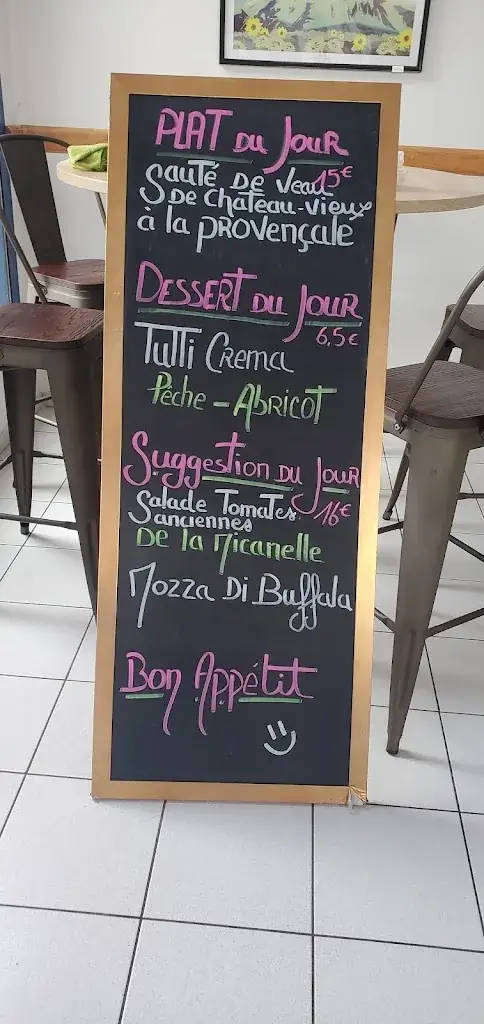 PLAT DU JOUR
Sauté de Veau 15€
de château-vieux
à la provençale
DESSERT DU JOUR
6.5€
Tutti Crema
Pêche - Abricot
Suggestion du Jour
Salade Tomates 16€
anciennes
De la Micanelle
Mozza Di Buffala
Bon Appétit